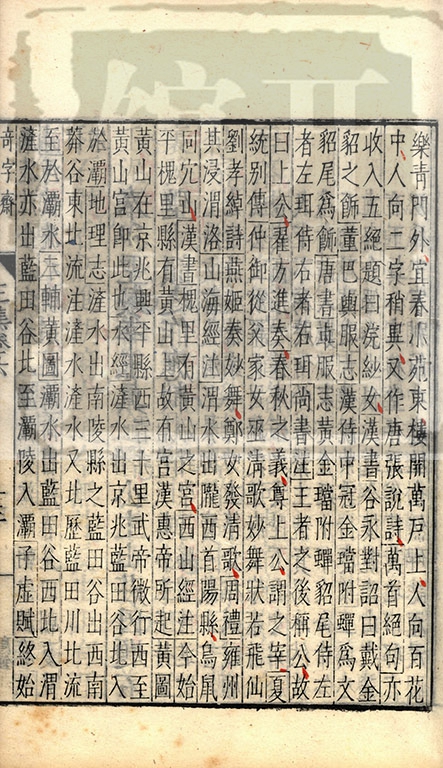 樂靑門外宜春下苑東樓開萬戶上人向百花
中人向二字稍與又作唐張說詩萬首絕句亦
收入五絕題曰浣紗女漢書谷永對詔曰戴金
貂之飾董巴輿服志漢侍中冠金璫附蟬爲文
貂尾爲飾唐書車服志黃金璫附蟬貂尾侍左
者左珥侍右者右珥尚書注王者之後稱公故
曰上公翟方進奏春秋之義尊上公謂之宰夏
統別傳仲御從父家女巫淸歌妙舞狀若飛仙
劉孝綽詩燕姬奏妙舞鄭女發淸歌周禮雍州
其浸渭洛山海經注渭水出隴西首陽縣鳥鼠
同穴山漢書槐里有黃山之宮西山經注今始
平槐里縣有黃山上故有宮漢惠帝所起黃圖
黃山在京兆興平縣西三十里武帝微行西至
黃山宮卽此也水經滻水出京兆藍田谷北入
於灞地理志滻水出南陵縣之藍田谷出西南
莽谷東北流注滻水滻水又北歷藍田川北流
至於灞水三輔黃圖灞水出藍田谷西北入渭
滻水亦出藍田谷北至灞陵入灞子虛賦終始
奇字齋